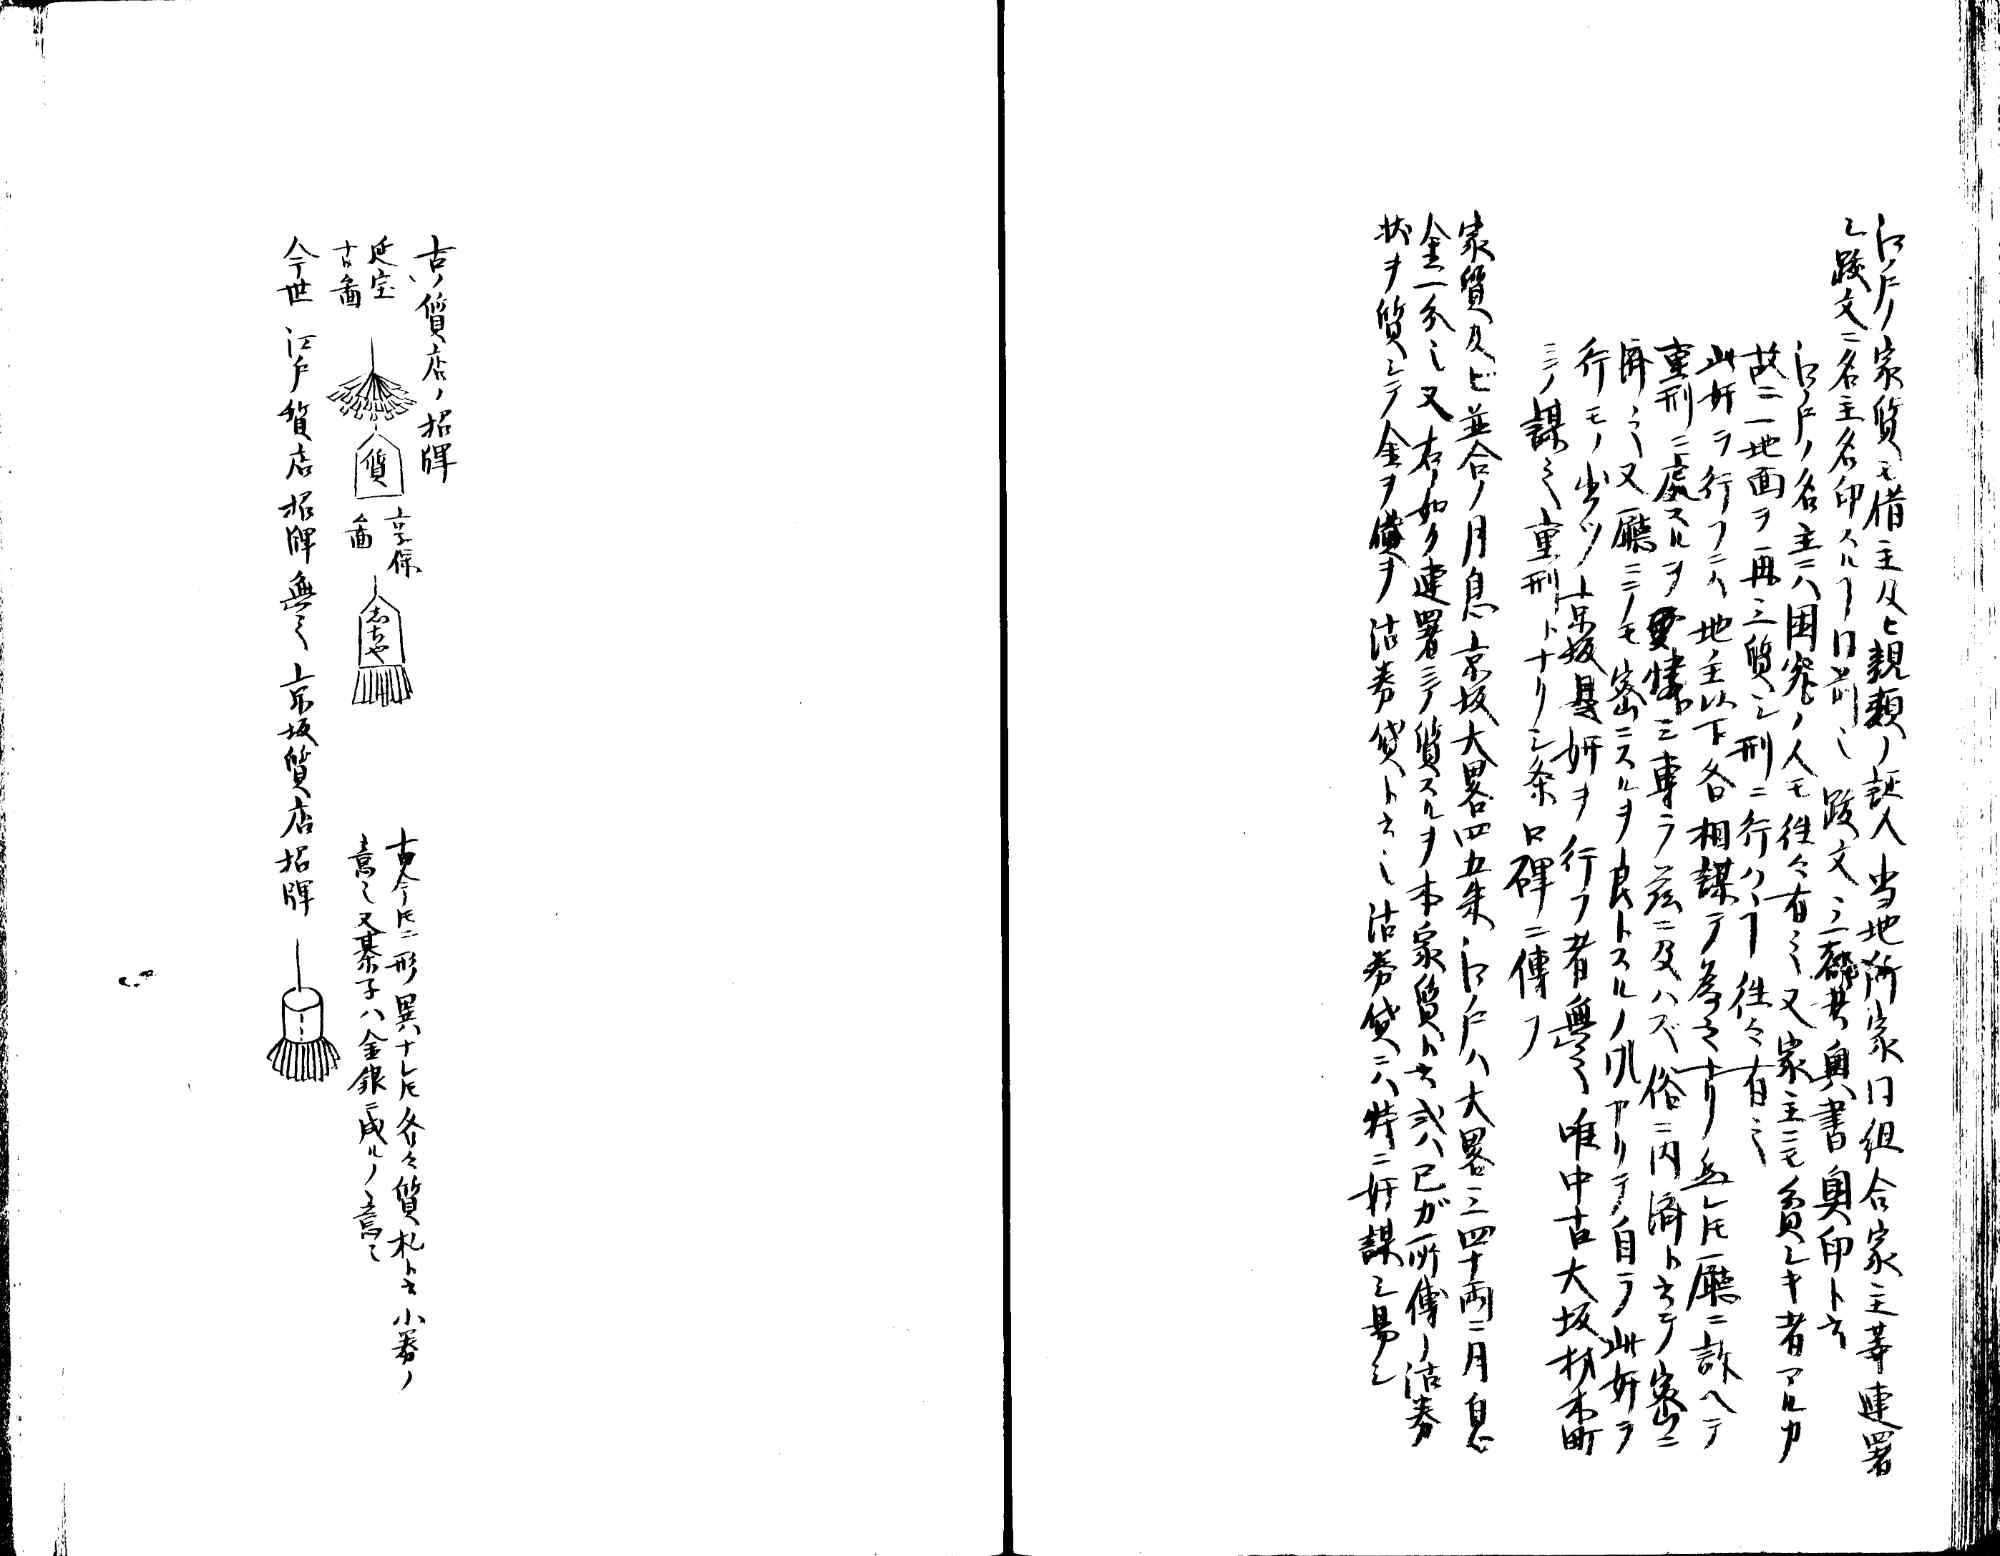 江戸ノ家質モ借主及ヒ親類ノ証人当地所家同組合家主等連署
シ跋文ニ名主名印スルヿ同前也 跋文ヲ三都共奥書奥印ト云
江戸ノ名主ニハ困窮ノ人モ往々有之又家主ニモ貧シキ者アルカ
故ニ一地面ヲ再三質シ刑ニ行ハヽヿ往々有之
此奸ヲ行フニハ地主以下各相謀テ為之ナリ然レ𪜈廳ニ訴ヘテ
重刑ニ處スルヲ要トセズ專ラ茲ニ及ハズ俗ニ内済ト云テ密ニ
済之又廳ニテモ密ニスルヲ良トスルノ風アリテ自ラ此奸ヲ
行モノ少ツ京坂是奸ヲ行フ者無之唯中古大坂材木町
三ノ謀之重刑トナリシ条口碑ニ傳フ
家質及ビ並合ノ月息京坂大畧四五朱江戸ハ大畧三四十両ニ月息
金一分也又右ノ如ク連署シテ質スルヲ本家質ト云或ハ己ガ所傳ノ沽券
状ヲ質シテ金ヲ借ヲ沽券貸ト云也沽券貸ニハ特ニ奸謀シ易シ
古ノ質店ノ招牌
延宝
古畫
質
享保
画
志ちや
古今𪜈ニ形異ナレ𪜈各々質札ト云小券ノ
意也又棊子ハ金銀ニ成ルノ意也
今世 江戸質店招牌無之京坂質店招牌